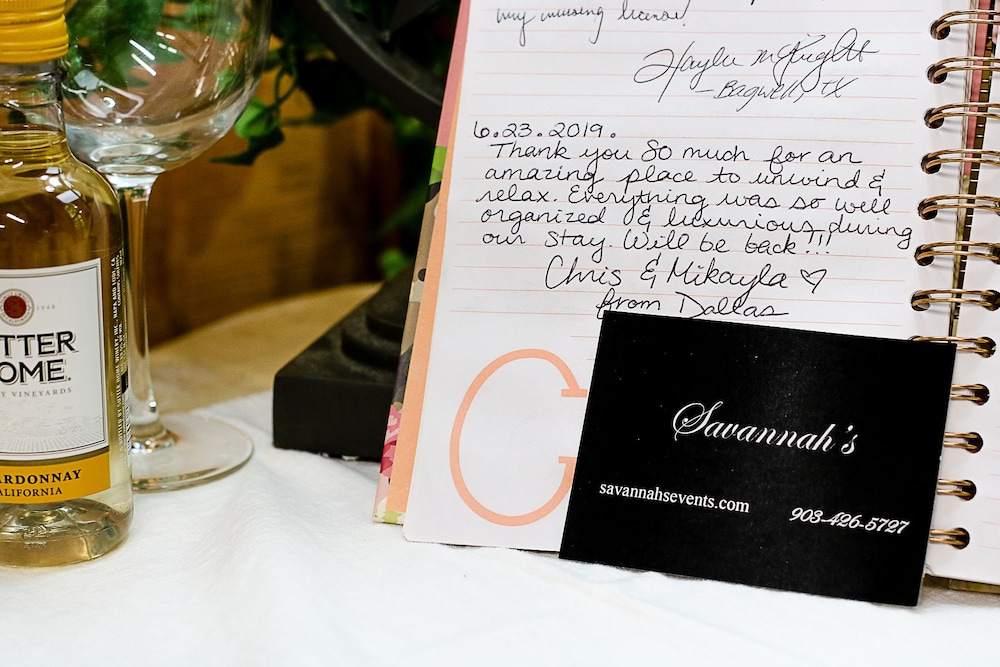 my nursing license!
Haylee McKnight
-Bagwell, TX
6.23.2019.
Thank you SO much for an
amazing place to unwind &
relax. Everything was so well
organized & luxurious during
our stay. Will be back!!!
Chris & Mikayla ♡
from Dallas
C
Savannah's
savannahsevents.com
903-426-5727
1948
TTER
OME.
Y VINEYARDS
ARDONNAY
ALIFORNIA